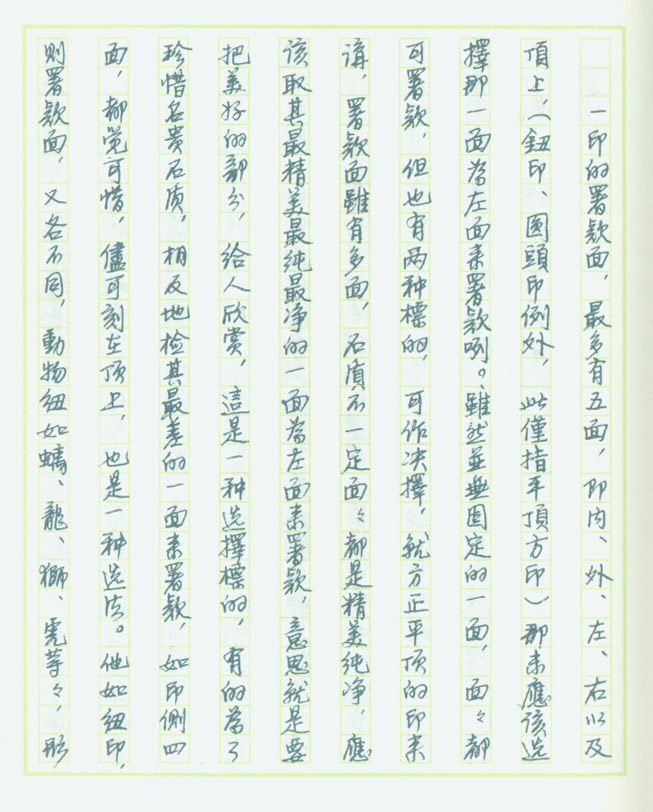 一印的署款面，最多有五面，即内、外、左、右以及
頂上，（鈕印、圓頭印例外，此僅指平頂方印）那末應该选
擇那一面為左面来署款咧。雖然並無固定的一面，面々都
可署款，但也有两种標的，可作决擇，就方正平顶的印来
講，署款面雖有多面，石質不一定面々都是精美纯净，應
该取其最精美最纯最净的一面為左面来署款，意思就是要
把美好的部分，给人欣赏，這是一种选擇標的，有的為了
珍惜名贵石质，相反地检其最差的一面来署款，如印侧四
面，都觉可惜，儘可刻在顶上，也是一种选法。他如纽印，
则署款面，又各不同，動物纽如螭、龍、獅、虎等々，形